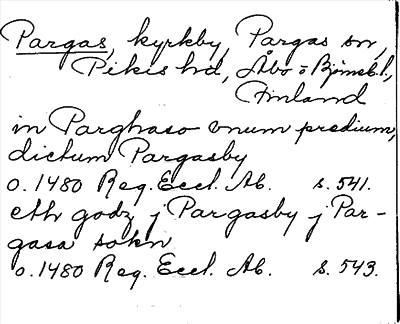 Pargas, kyrkby, Pargas sn,
Pikis hd, Åbo o Björneb. l.,
Finland
in Parghaso vnum predium,
dictum Pargasby
o. 1480 Reg. Eccl. Ab. s. 541.
eth godz j Pargasby j Par-
gasa sokn
o. 1480 Reg. Eccl. Ab. s. 543.